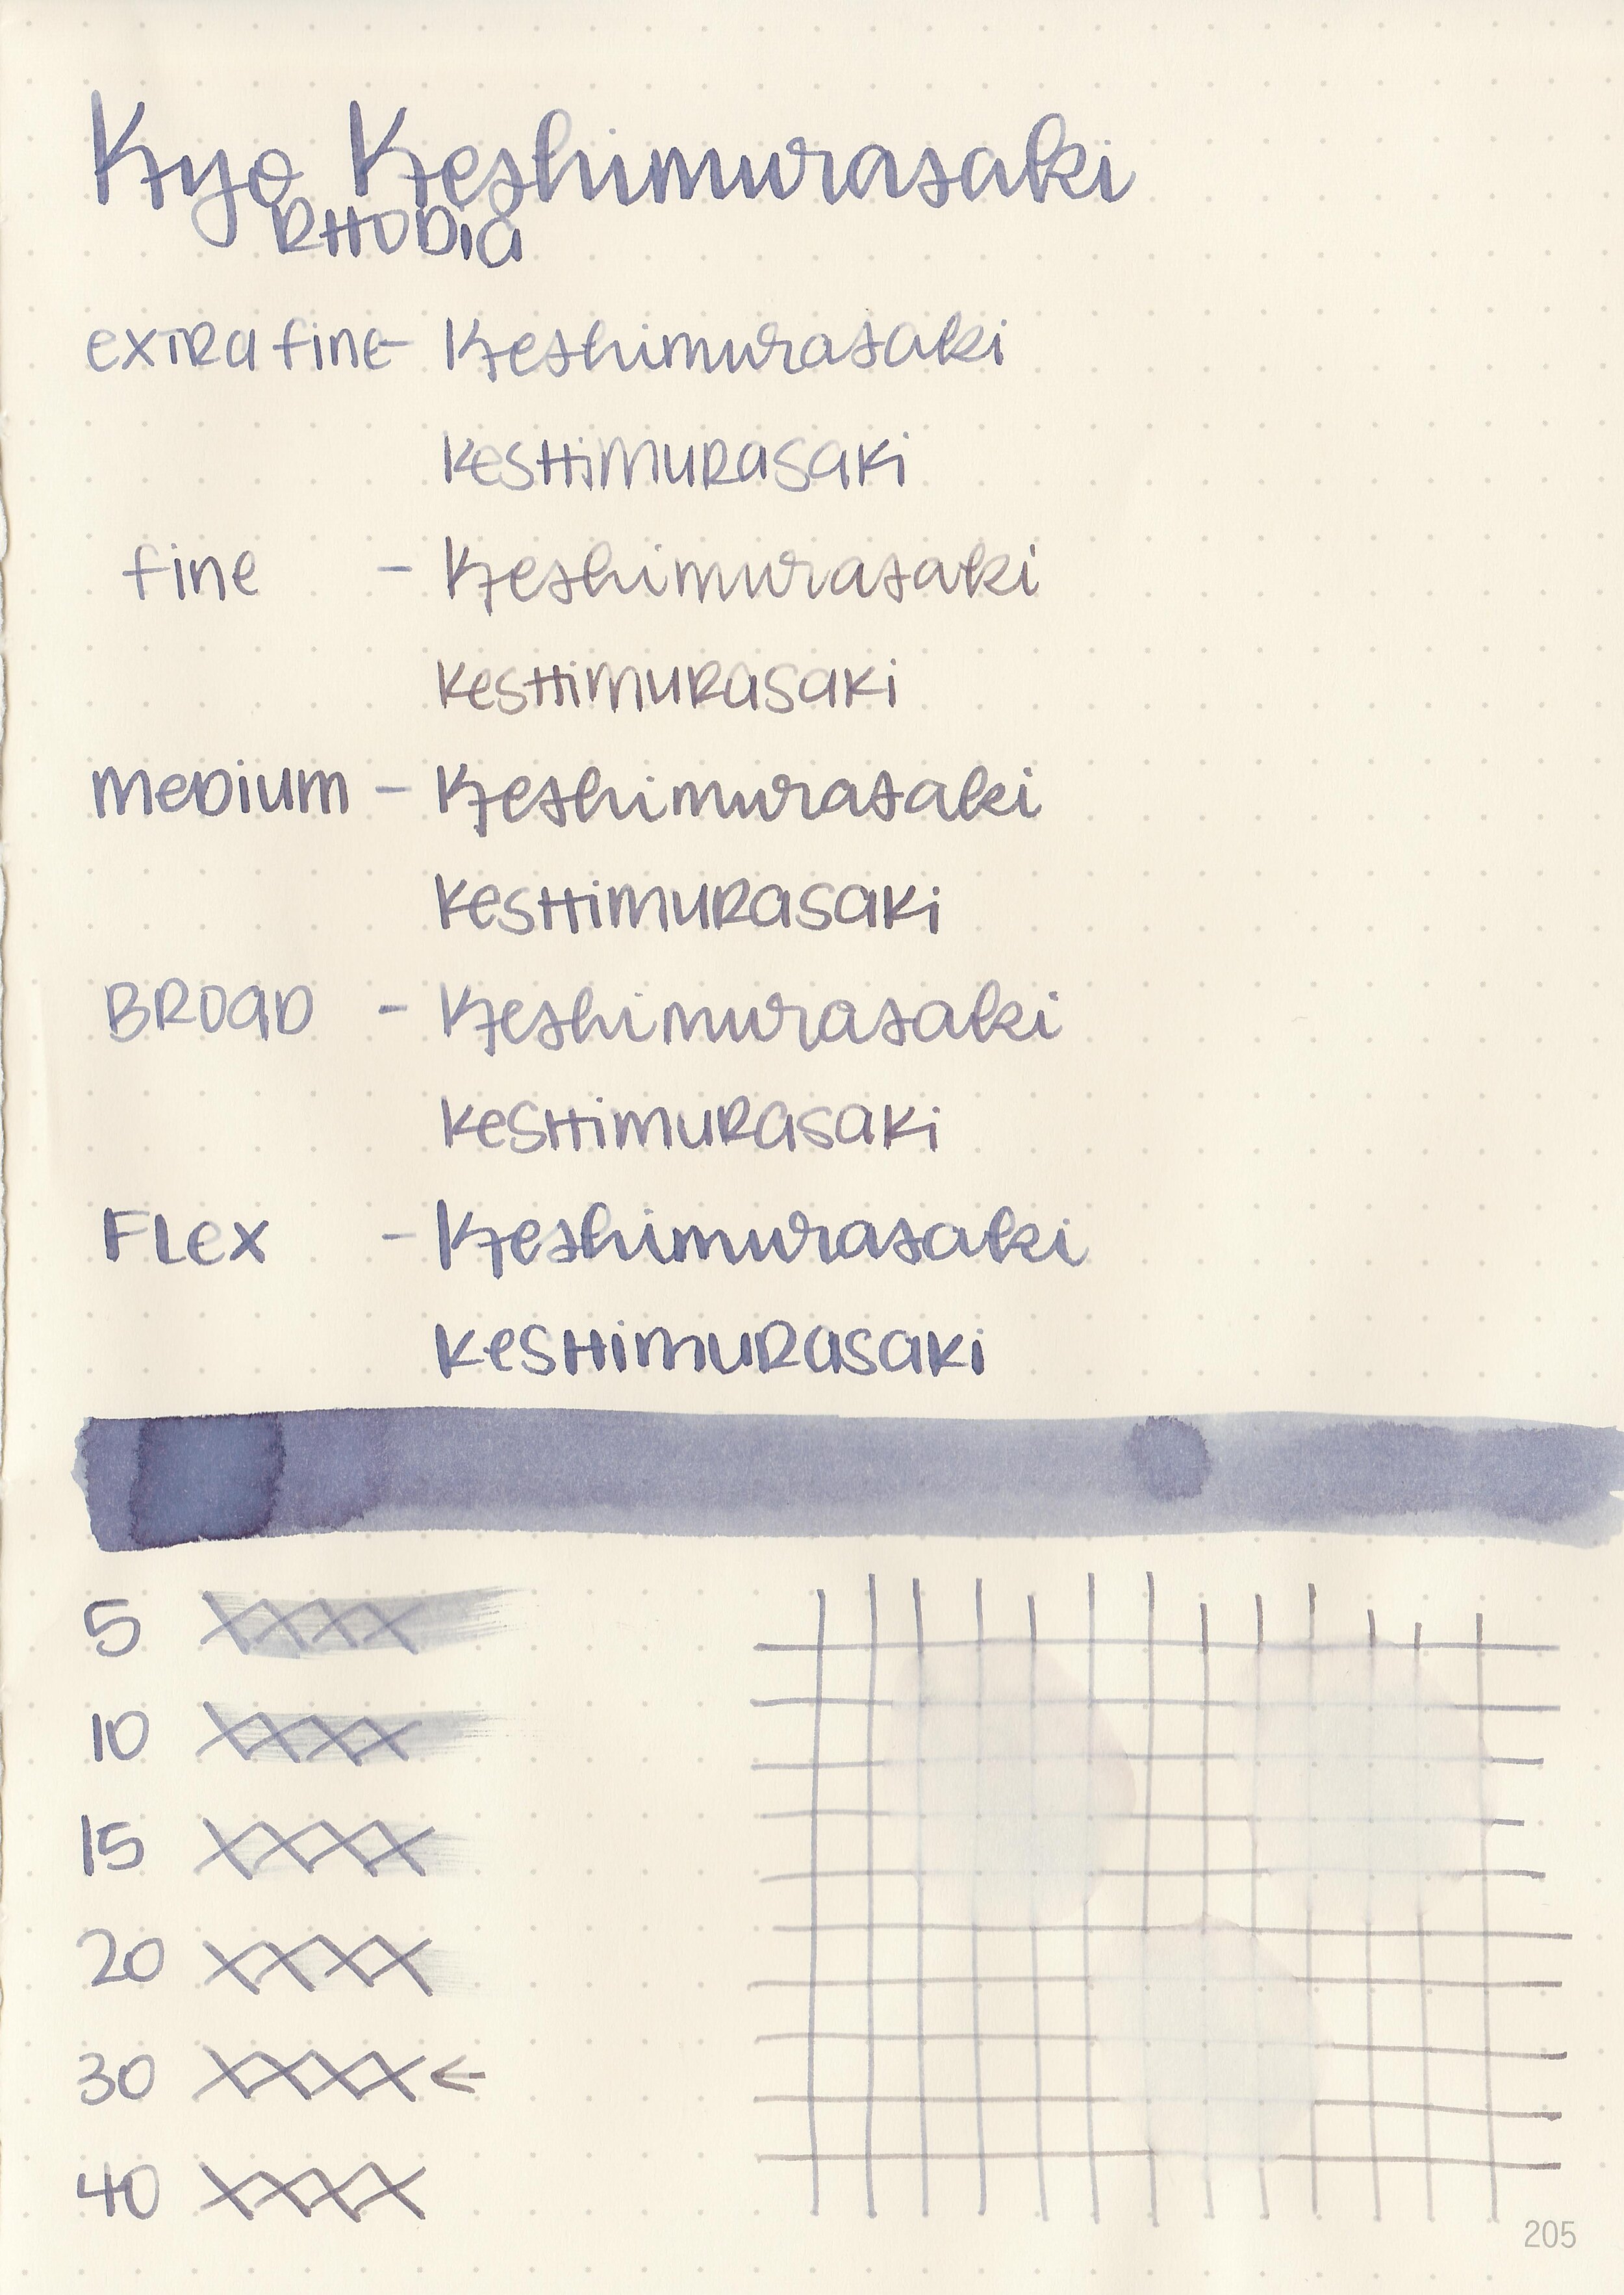 Kyo Keshimurasaki
RHODIA
extra fine - Keshimurasaki
Keshimurasaki
fine - Keshimurasaki
Keshimurasaki
Medium - Keshimurasaki
Keshimurasaki
BROAD - Keshimurasaki
Keshimurasaki
FLex - Keshimurasaki
Keshimurasaki
5 XXXX
10 XXXX
15 XXXX
20 XXXX
30 XXXX ←
40 XXXX
205